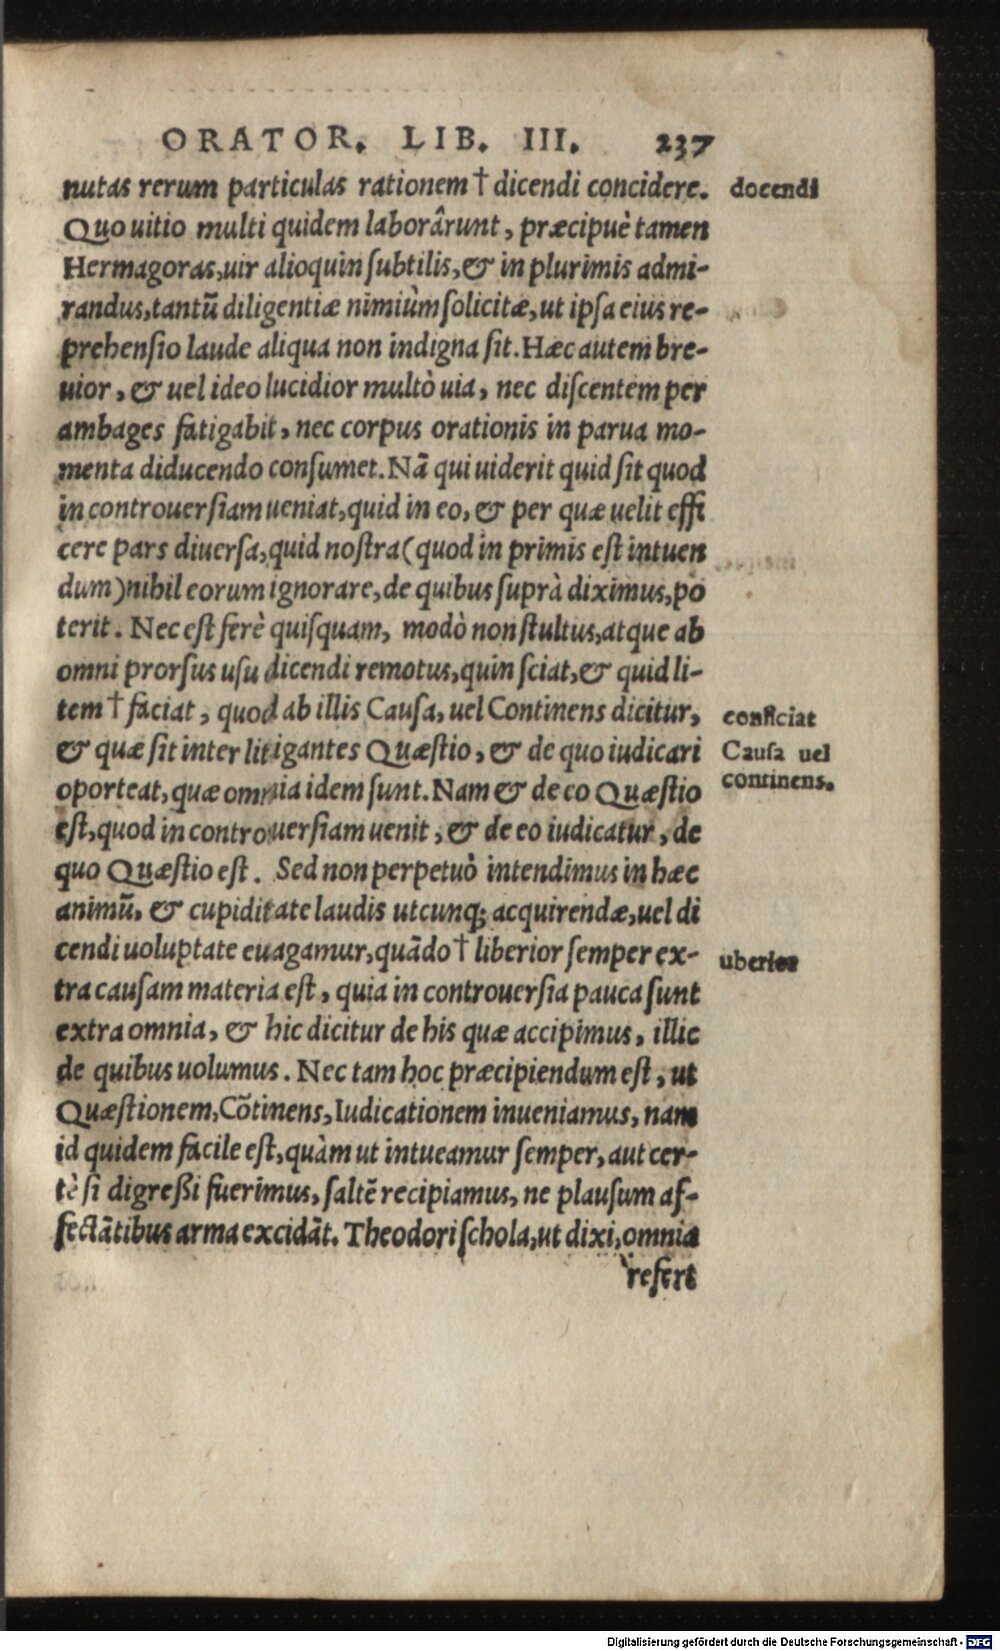 ORATOR. LIB. III. 237
nutas rerum particulas rationem † dicendi concidere.
docendi
Quo uitio multi quidem laborârunt, præcipuè tamen
Hermagoras, uir alioquin subtilis, & in plurimis admi-
randus, tantũ diligentiæ nimiùm solicitæ, ut ipsa eius re-
prehensio laude aliqua non indigna sit. Hæc autem bre-
uior, & uel ideo lucidior multò uia, nec discentem per
ambages fatigabit, nec corpus orationis in parua mo-
menta diducendo consumet. Nã qui uiderit quid sit quod
in controuersiam ueniat, quid in eo, & per quæ uelit effi
cere pars diuersa, quid nostra (quod in primis est intuen
dum) nihil eorum ignorare, de quibus suprà diximus, po
terit. Nec est ferè quisquam, modò non stultus, atque ab
omni prorsus usu dicendi remotus, quin sciat, & quid li-
tem † faciat, quod ab illis Causa, uel Continens dicitur,
conficiat
& quæ sit inter litigantes Quæstio, & de quo iudicari
Causa uel
oporteat, quæ omnia idem sunt. Nam & de eo Quæstio
continens.
est, quod in controuersiam uenit, & de eo iudicatur, de
quo Quæstio est. Sed non perpetuò intendimus in hæc
animũ, & cupiditate laudis utcunq; acquirendæ, uel di
cendi uoluptate euagamur, quãdo † liberior semper ex-
uberior
tra causam materia est, quia in controuersia pauca sunt
extra omnia, & hic dicitur de his quæ accipimus, illic
de quibus uolumus. Nec tam hoc præcipiendum est, ut
Quæstionem, Cõtinens, Iudicationem inueniamus, nam
id quidem facile est, quàm ut intueamur semper, aut cer-
tè si digreßi fuerimus, saltẽ recipiamus, ne plausum af-
fectãtibus arma excidãt. Theodori schola, ut dixi, omnia
refert
Digitalisierung gefördert durch die Deutsche Forschungsgemeinschaft - DFG